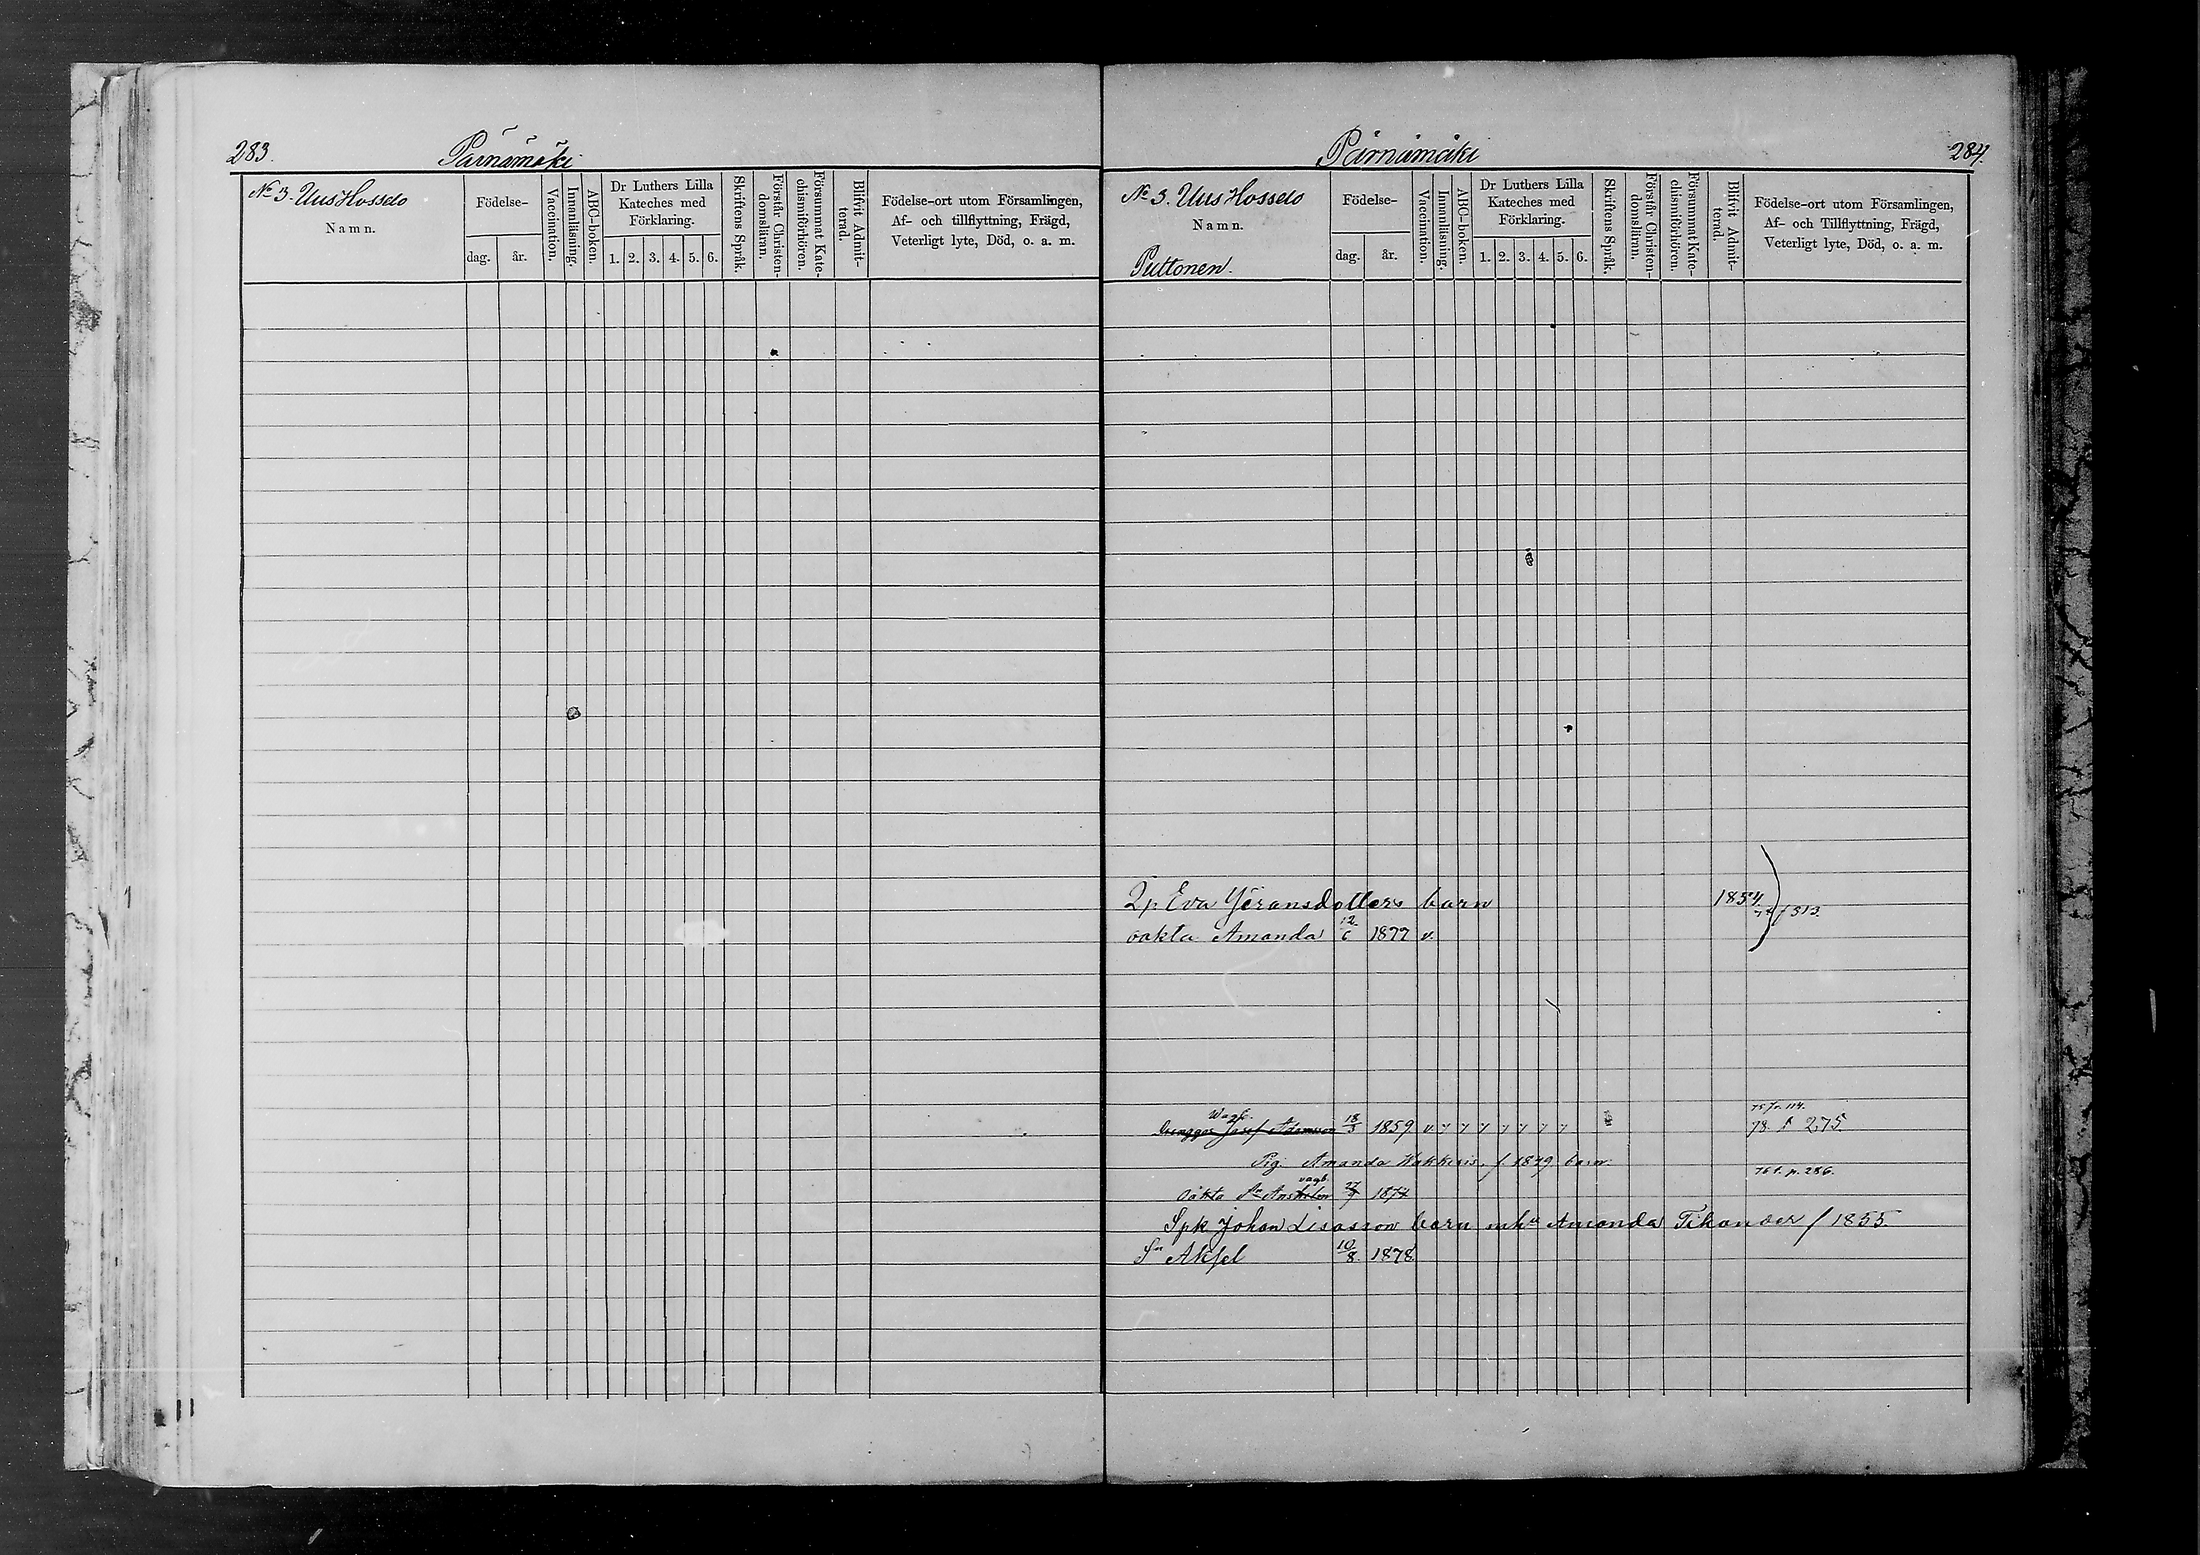 283.
Pärnämäki
No 3. Uus Hosselo
Namn.
Födelse-
dag.
år.
Vaccination.
Innanläsning.
ABC-boken.
Dr Luthers Lilla
Kateches med
Förklaring.
1. 2. 3. 4. 5. 6.
Skriftens Språk.
Förstår Christen-
domsläran.
Försummat Kate-
chismiförhören.
Blifvit Admit-
terad.
Födelse-ort utom Församlingen,
Af- och tillflyttning, Frägd,
Veterligt lyte, Död, o. a. m.
Pärnämäki
284.
No 3. Uus Hosselo
Namn.
Puttonen.
Födelse-
dag.
år.
Vaccination.
Innanläsning.
ABC-boken.
Dr Luthers Lilla
Kateches med
Förklaring.
1. 2. 3. 4. 5. 6.
Skriftens Språk.
Förstår Christen-
domsläran.
Försummat Kate-
chismiförhören.
Blifvit Admit-
terad.
Födelse-ort utom Församlingen,
Af- och Tillflyttning, Frägd,
Veterligt lyte, Död, o. a. m.
Eva Göransdotters barn 1854.
oäkta Amanda 12/6 1877 v.
75 fr. 114.
Josef Adamsson 18/3 1859 v. 78. f 275.
Pig. Amanda f. 1849 barn.
76 f. p. 286.
Oäkta Sn Anshelm 27/7 1874
Spk Johan Lisasson barn mhu Amanda Tikander f 1855.
Sn Aksel 10/8. 1878